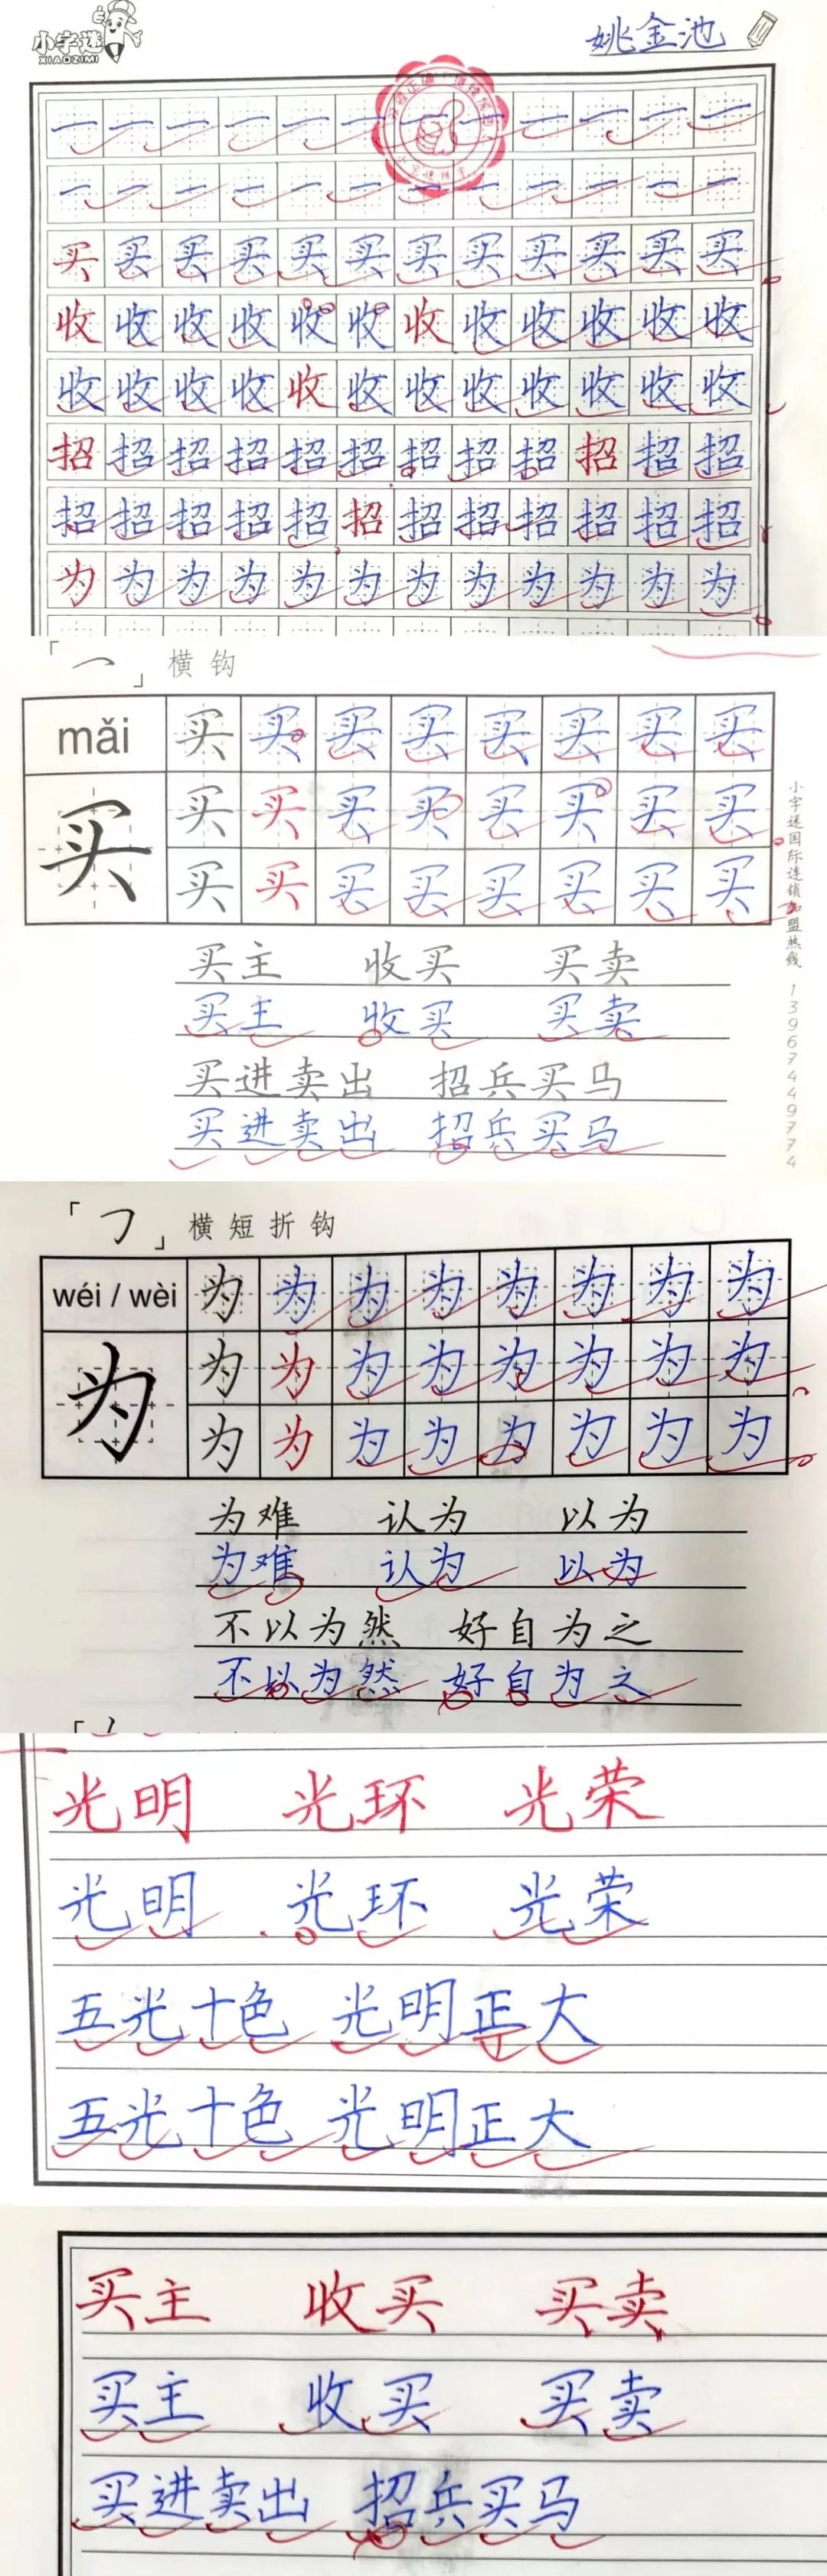 小字迷
XIAOZIMI
姚金池
一 一 一 一 一 一 一 一 一 一 一 一
一 一 一 一 一 一 一 一 一 一 一 一
买 买 买 买 买 买 买 买 买 买 买 买
收 收 收 收 收 收 收 收 收 收 收 收
收 收 收 收 收 收 收 收 收 收 收 收
招 招 招 招 招 招 招 招 招 招 招 招
招 招 招 招 招 招 招 招 招 招 招 招
为 为 为 为 为 为 为 为 为 为 为 为
「乛」横钩
mǎi 买 买 买 买 买 买 买 买
买 买 买 买 买 买 买 买 买
买 买 买 买 买 买 买 买
买主 收买 买卖
买主 收买 买卖
买进卖出 招兵买马
买进卖出 招兵买马
小字迷国际连锁加盟热线 13967449774
「㇆」横短折钩
wéi / wèi 为 为 为 为 为 为 为 为
为 为 为 为 为 为 为 为 为
为 为 为 为 为 为 为 为
为难 认为 以为
为难 认为 以为
不以为然 好自为之
不以为然 好自为之
光明 光环 光荣
光明 光环 光荣
五光十色 光明正大
五光十色 光明正大
买主 收买 买卖
买主 收买 买卖
买进卖出 招兵买马